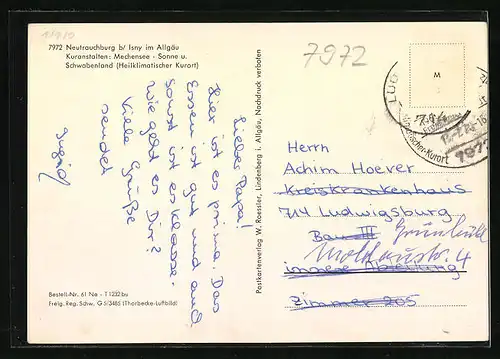 7972 Neutrauchburg b/ Isny im Allgäu
Kuranstalten: Mechensee - Sonne u.
Schwabenland (Heilklimatischer Kurort)
7972
M
Lieber Papa!
Hier ist es prima. Das
Essen ist gut und auch
sonst ist es Klasse.
Wie geht es Dir?
Viele Grüße
sendet
Ingrid
Postkartenverlag W. Roessler, Lindenberg i. Allgäu, Nachdruck verboten
Herrn
Achim Hoever
Kreiskrankenhaus
714 Ludwigsburg
Bau III Grünbühl
Moldaustr. 4
innere Abteilung
Zimmer 205
Bestell-Nr. 61 Na - T 1232 bu
Freig. Reg. Schw. G 5/3485 (Thorbecke-Luftbild)